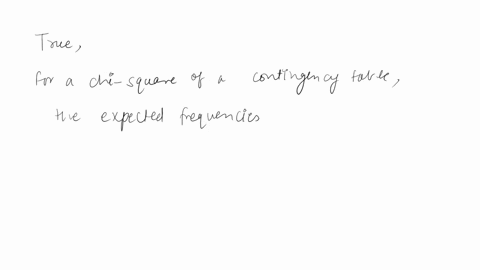 True,
for a chi-square of a contingency table,
the expected frequencies